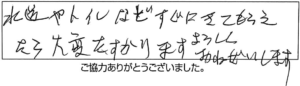 水道やトイレはどすぐにきてもらえ
たら大変たすかりますよろしく
おねがいします
ご協力ありがとうございました。